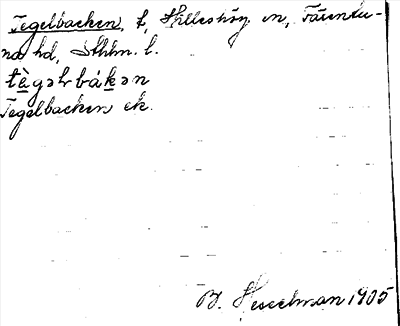 Tegelbacken, t, Hilleshög sn, Färentu-
na hd, Sthlm. l.
tègəlrbákən
Tegelbacken ek.
B. Hesselman 1905